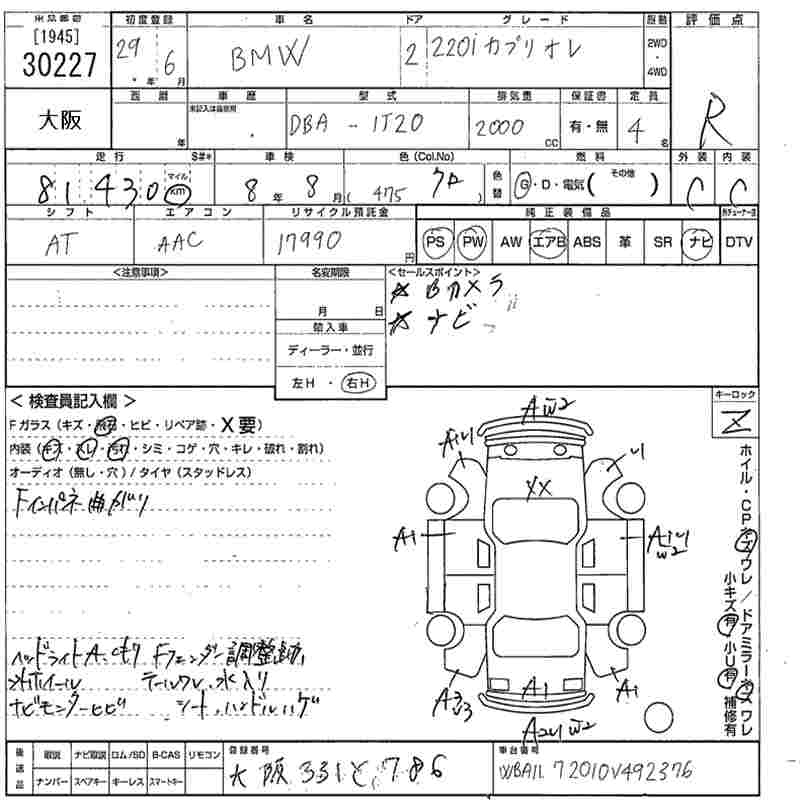 出品番号 初度登録 車名 ドア グレード 駆動 評価点
[1945] 30227 29年 6月 BMW 2 220i カブリオレ 2WD・4WD R
大阪 西暦 車歴 型式 排気量 保証書 定員
年 未記入は自家用 DBA - 1T20 2000 CC 有・無 4名
走行 S#* 車検 色(Col.No) 色替 燃料 外装 内装
81,430 マイル km 8年 8月 (475 クロ) G・D・電気( その他 ) C C
シフト エアコン リサイクル預託金 純正装備品
AT AAC 17990円 PS PW AW エアB ABS 革 SR ナビ DTV
<注意事項> 名変期限 <セールスポイント>
月 日 ☆ Bカメラ
輸入車 ☆ ナビ
ディーラー・並行
左H ・ 右H
<検査員記入欄> キーロック
Fガラス(キズ・飛石・ヒビ・リペア跡・X要)
内装(キズ・スレ・汚れ・シミ・コゲ・穴・キレ・破れ・割れ)
オーディオ(無し・穴)/タイヤ(スタッドレス)
Fインパネ曲がり
AW2
A1U U
XX
A1 A1U W2
A1 A1
A2U W2
ホイル・CPキズワレ/ドアミラーキズワレ
小キズ有 小U有 補修有
ヘッドライトA、くもり Fフェンダー調整跡、
テールワレ、水入り
ナビモニターヒビ シート、ハンドルハゲ
後送品 取説 ナビ取説 ロム/SD B-CAS リモコン 登録番号 車台番号
ナンバー スペアキー キーレス スマートキー 大阪 331 と 786 WBA1L 72010V492376